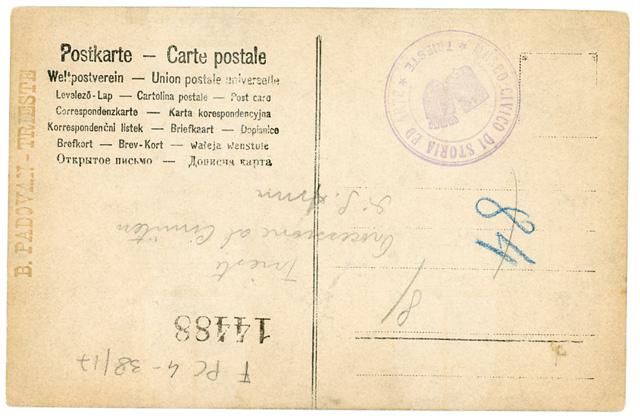 Postkarte — Carte postale
Weltpostverein — Union postale universelle
Levelező-Lap — Cartolina postale — Post card
Correspondenzkarte — Karta korespondencyjna
Korrespondenční listek — Briefkaart — Dopisnice
Brefkort — Brev-Kort —Wateja wenstule
Открытое письмо — Дописна карта
B. PADOVAN - TRIESTE
CIVICO DI STORIA ED ARTE * TRIESTE *
48
Trieste
Processione al
di S.
8/
14488
F PC 4 - 38/17